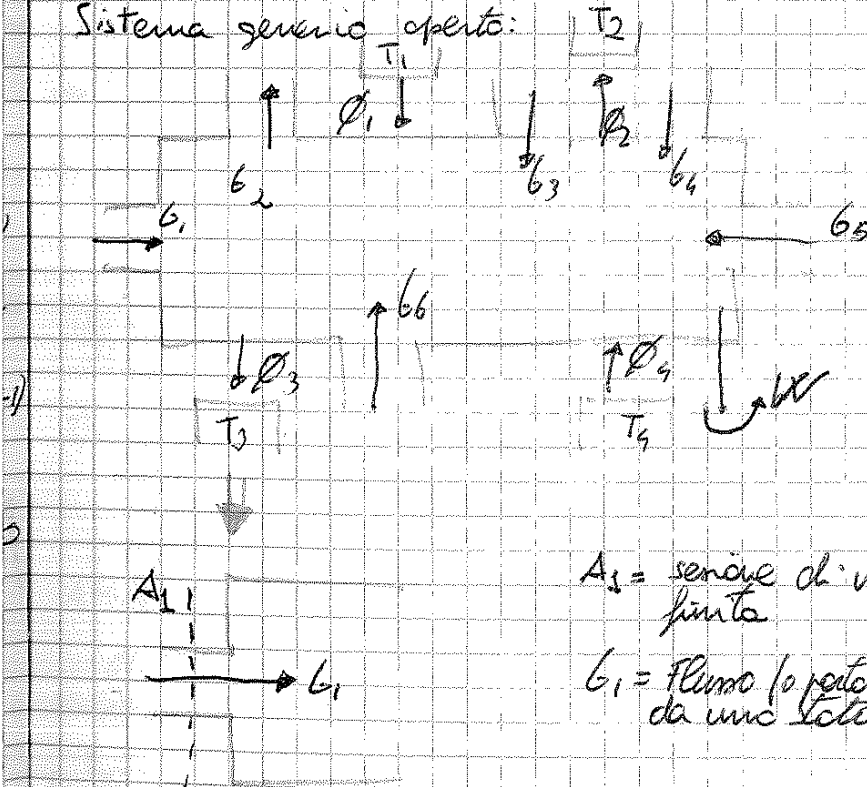 Sistema generico aperto:
T1 T2
Ø1 Ø2
G2 G3 G4
G1 G5
G6
Ø3 Ø4
T3 T4
A1
A1 = sezione di
finita
G1 G1 = Flusso (o porta
da una